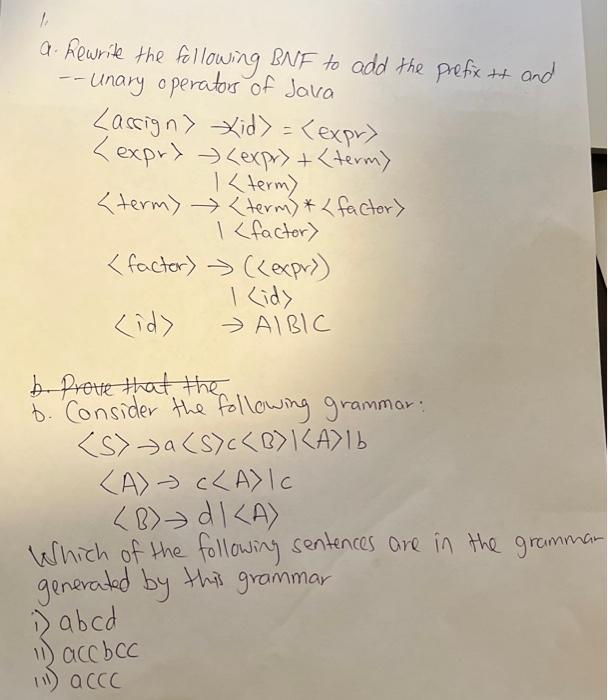 1.
a. Rewrite the following BNF to add the prefix ++ and
-- unary operators of Java
<assign> → <id> = <expr>
<expr> → <expr> + <term>
| <term>
<term> → <term> * <factor>
| <factor>
<factor> → (<expr>)
| <id>
<id> → A|B|C
b. Prove that the
b. Consider the following grammar:
<S> → a<S>c<B>|<A>|b
<A> → c<A>|c
<B> → d|<A>
Which of the following sentences are in the grammar
generated by this grammar
i) abcd
ii) accbcc
iii) accc